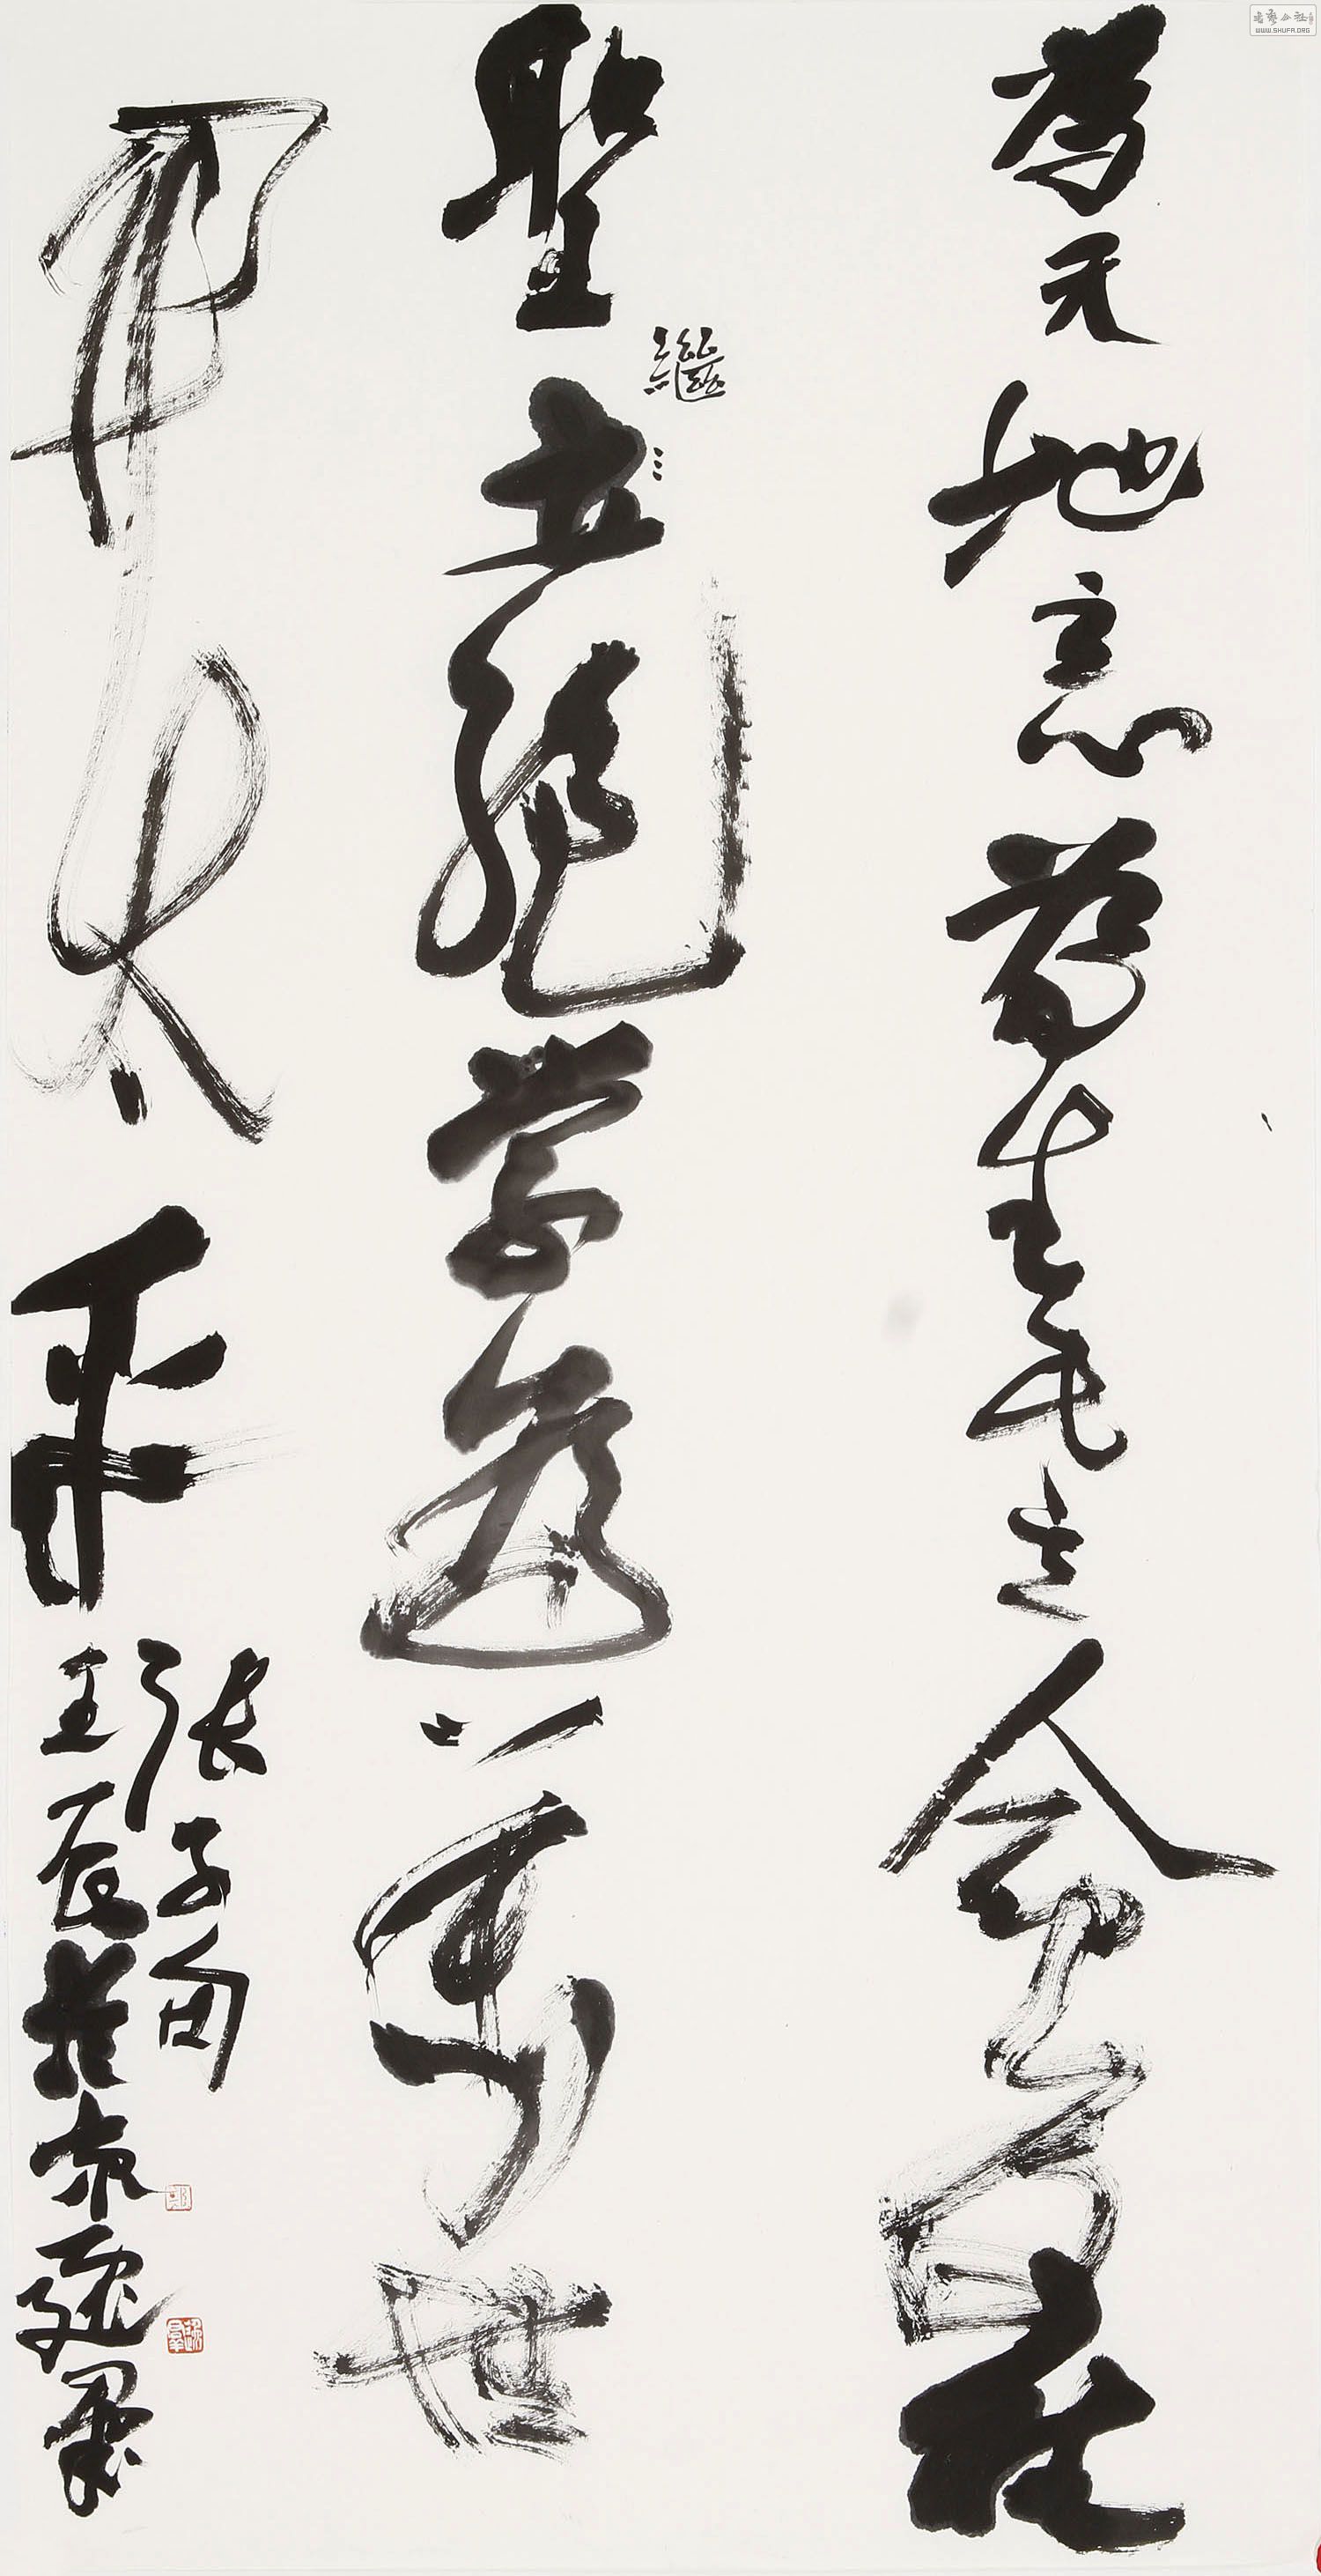 書藝公社
WWW.SHUFA.ORG
為天地立心為生民立命為往
聖立絕学為萬世
繼
開太平
張子句
壬辰於京墨